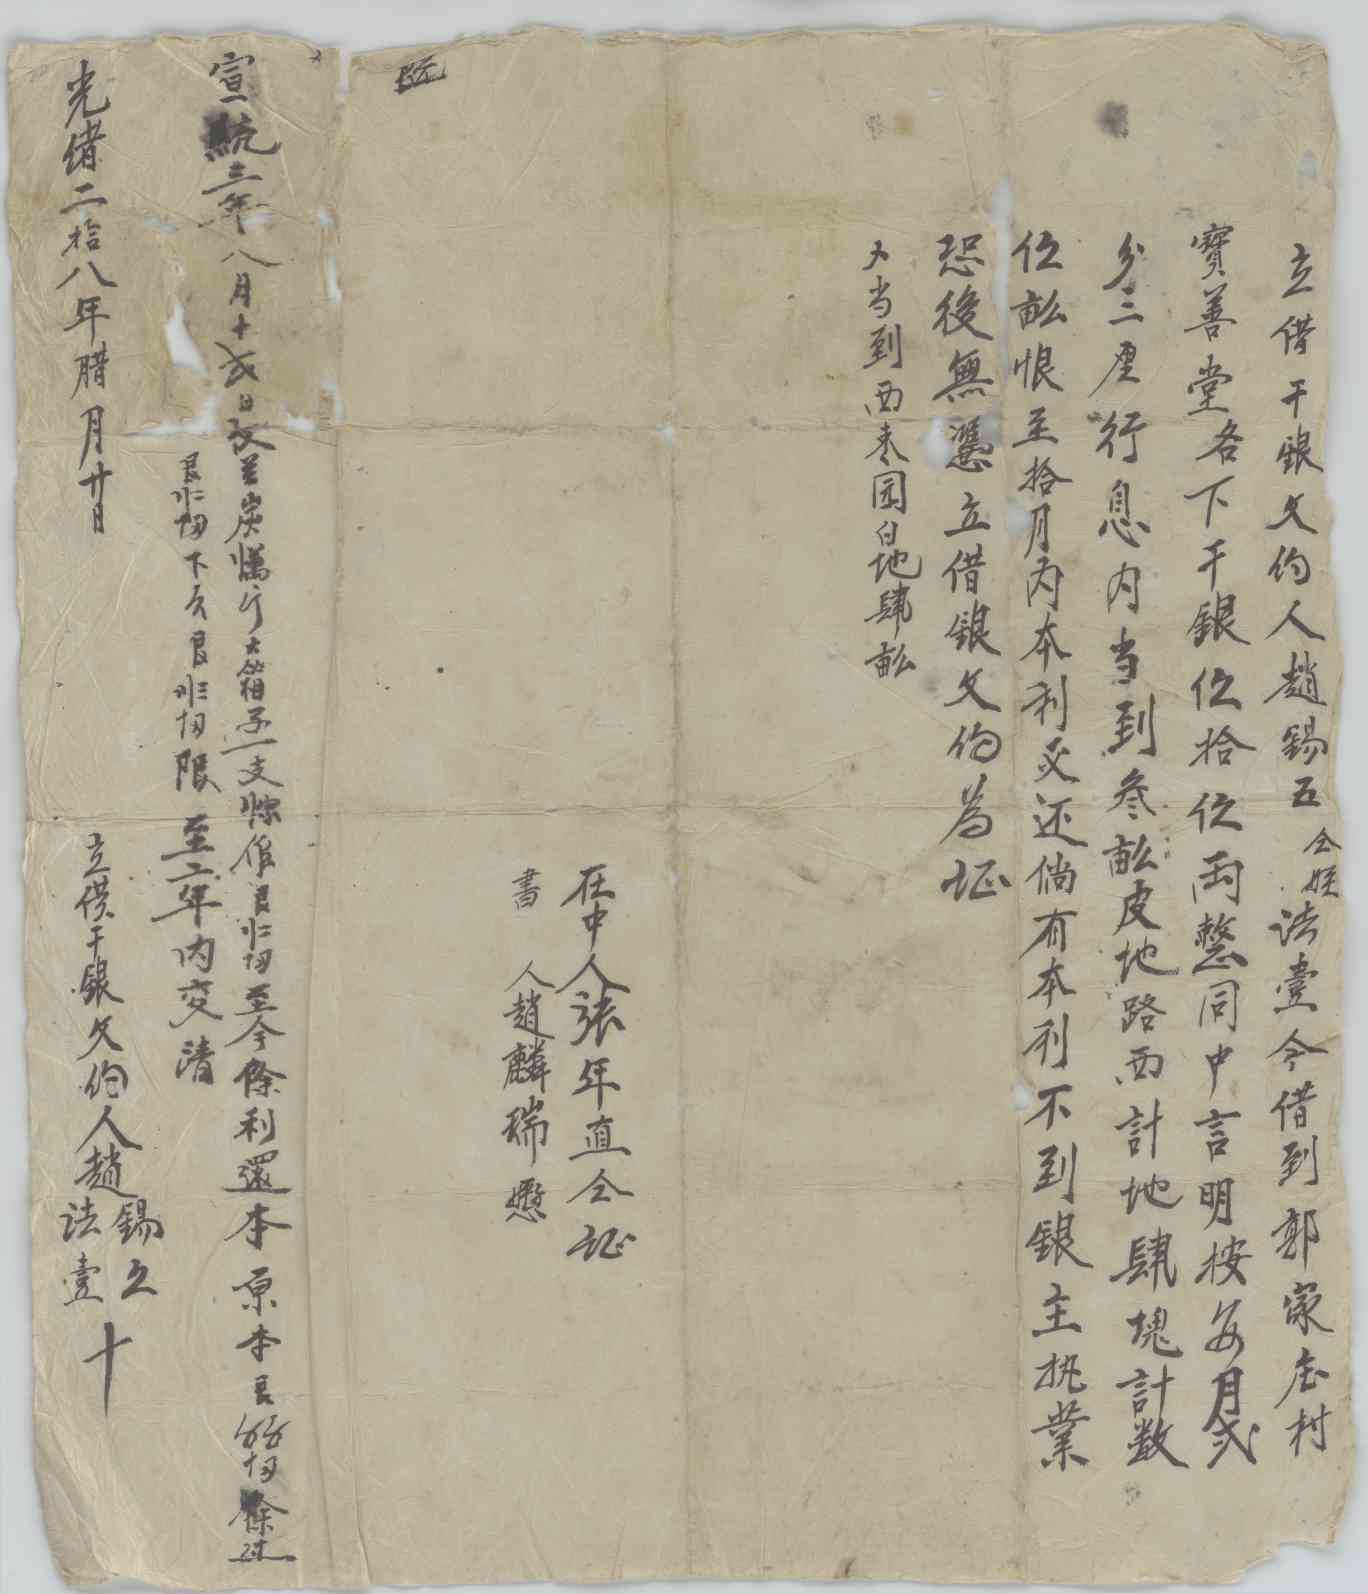 立借干銀文约人趙錫五仝姪法壹今借到郭家庄村
寳善堂名下干銀伍拾伍両整同中言明按每月弍
分三厘行息内当到叁畝皮地路西計地肆塊計数
伍畝恨至拾月内本利交还倘有本利不到銀主执業
恐後無憑立借銀文约為証
又当到西枣园白地肆畝
在中人張年直仝証
書人趙麟瑞懋
宣統三年八月十弍日收
大箱子一支
至今除利還本原本艮
下欠艮
限至二年内交清
光绪二拾八年腊月廿日
立借干銀文约人趙錫五法壹十